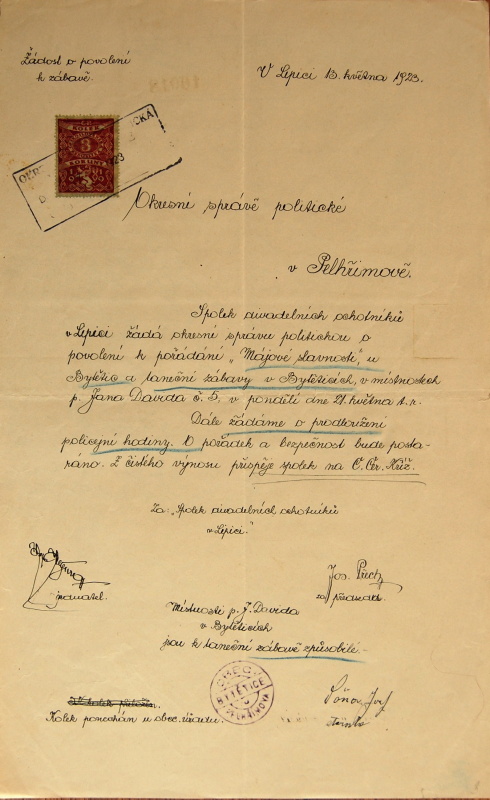 Žádost o povolení
k zábavě.
V Lipici 13. května 1923.
KOLEK
3
KORUNY
Okresní správě politické
v Pelhřimově.
Spolek divadelních ochotníků
v Lipici žádá okresní správu politickou o
povolení k pořádání „Májové slavnosti" u
Bytětic a taneční zábavy v Bytěticích, v místnostech
p. Jana Davida č. 5, v pondělí dne 21. května t. r.
Dále žádáme o prodloužení
policejní hodiny. O pořádek a bezpečnost bude posta-
ráno. Z čistého výnosu přispěje spolek na Č. Čer. Kříž.
Za: „Spolek divadelních ochotníků
v Lipici."
jednatel.
Jos.
za
Místnosti p. J. Davida
v Bytěticích
jsou k taneční zábavě způsobilé.
OBEC
BYTĚTICE
Kolek ponechán u obec. úřadu.